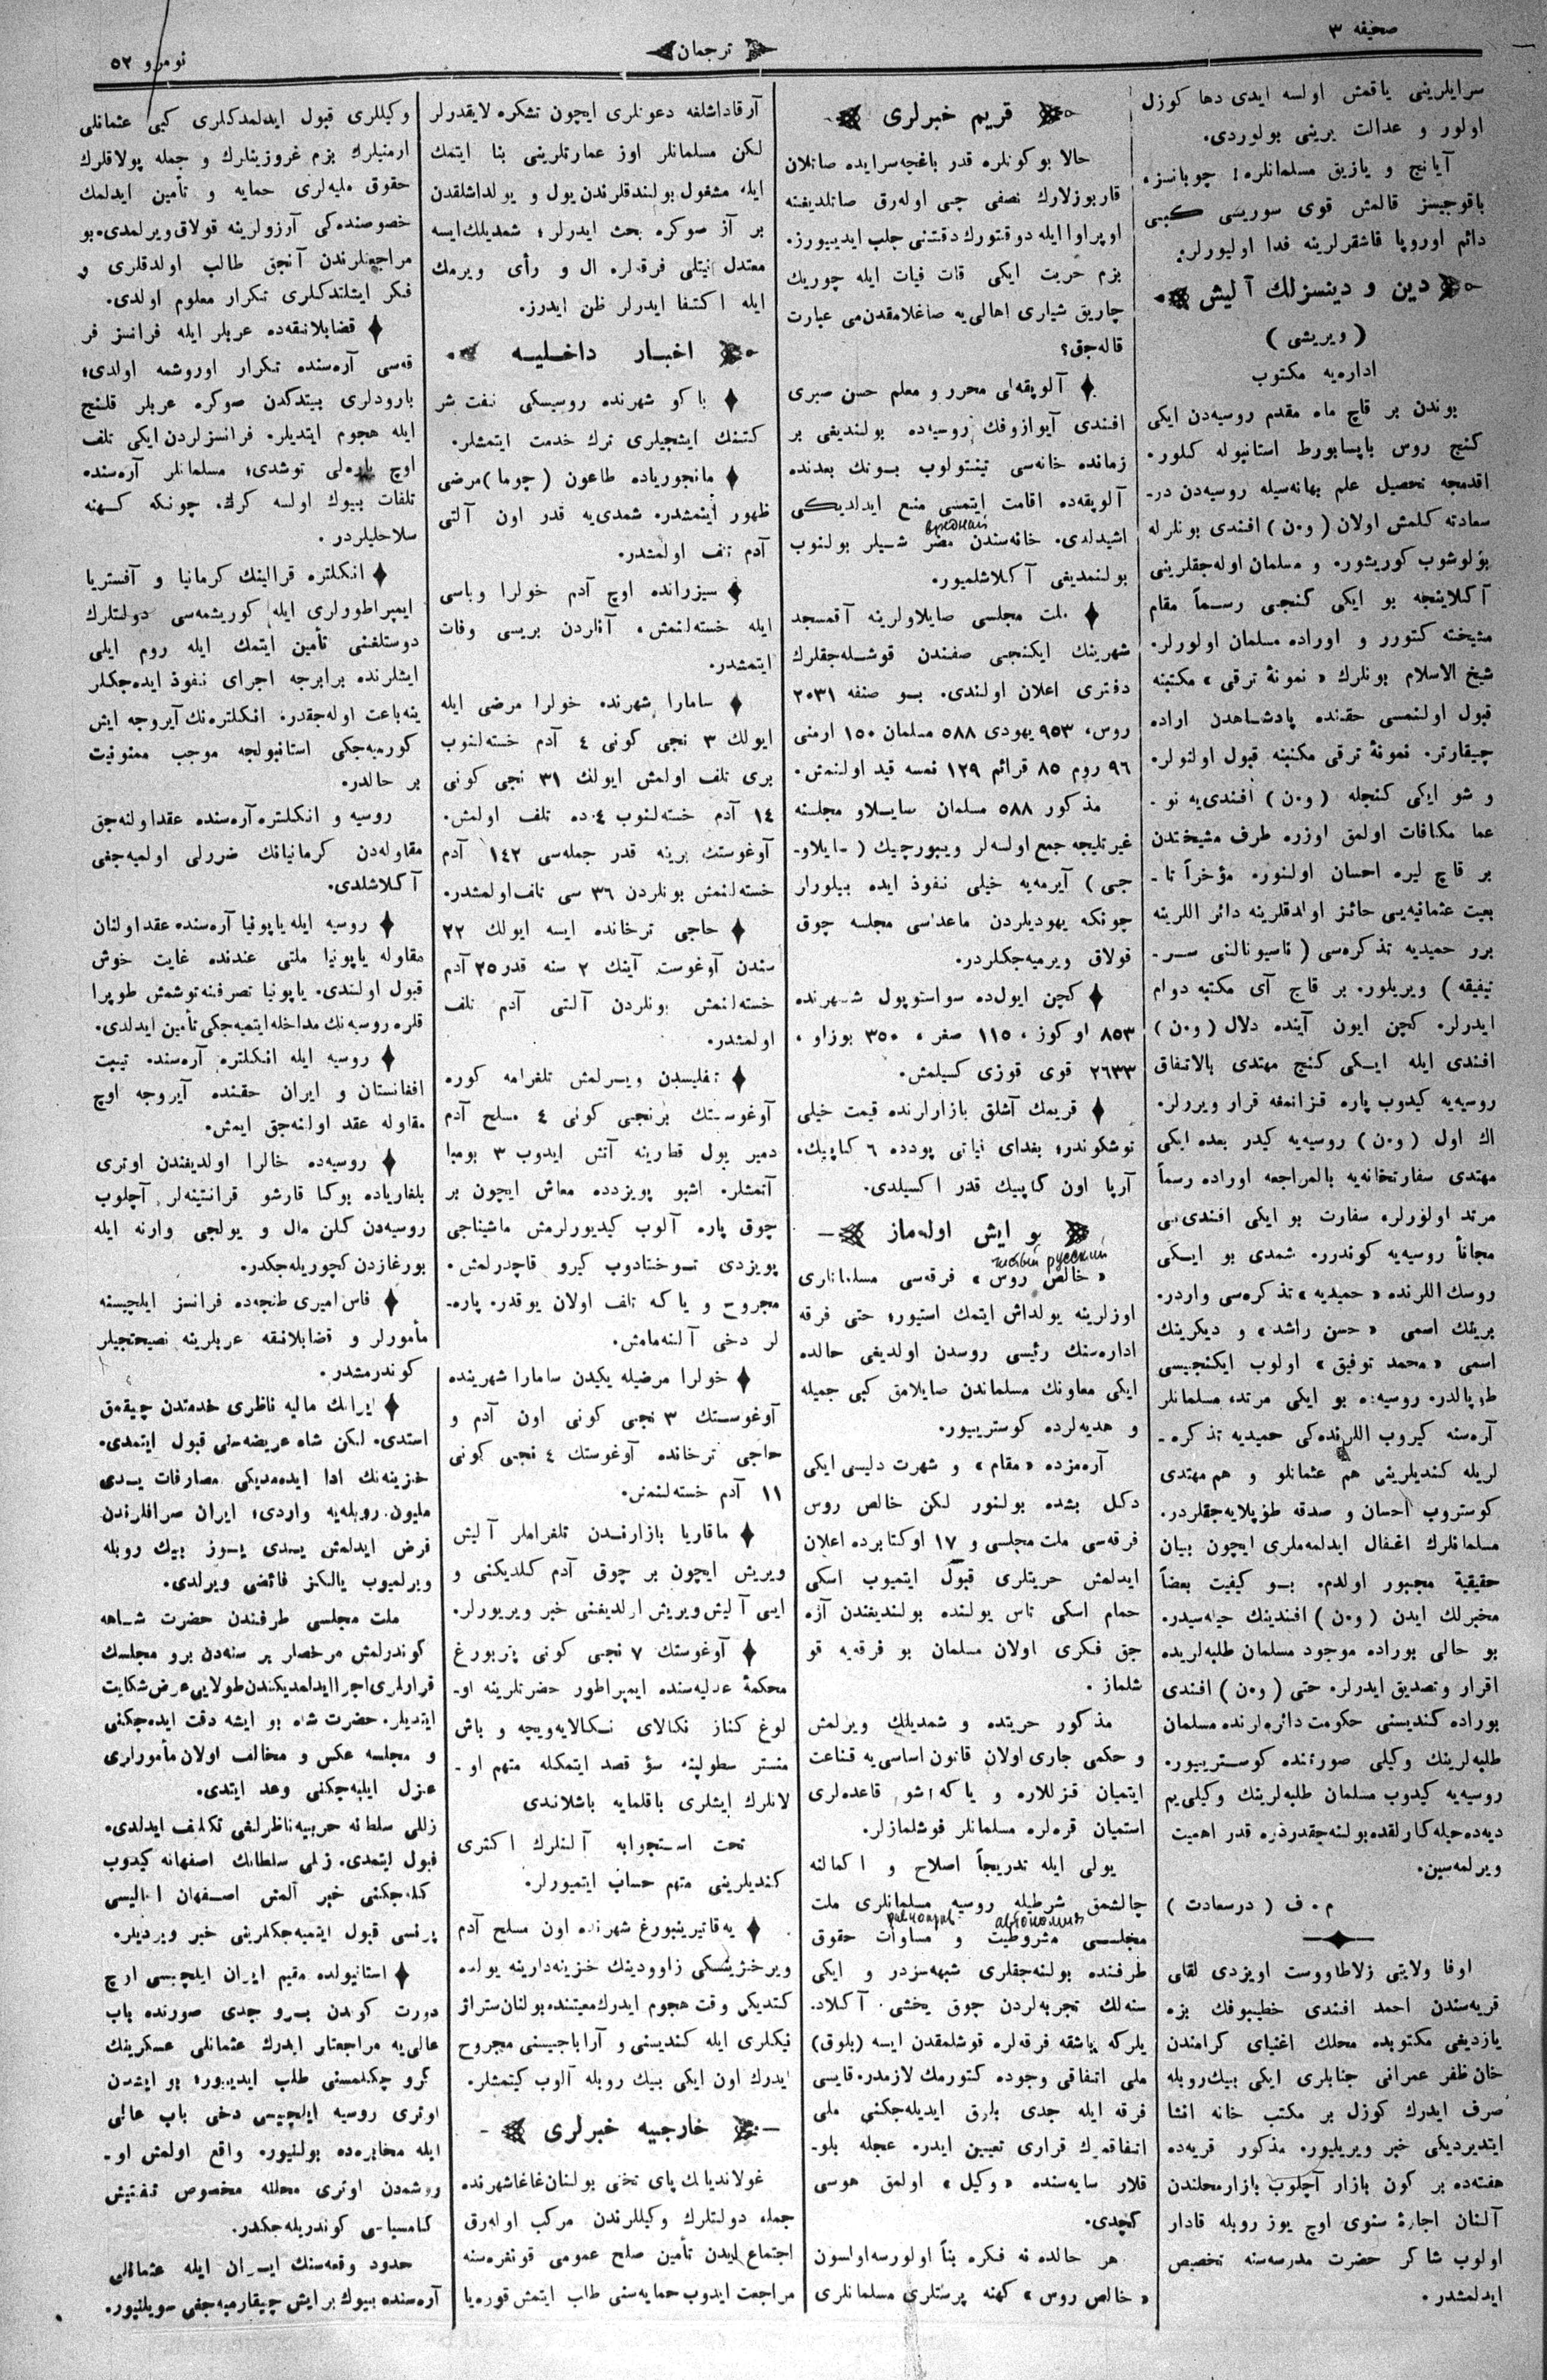 صحیفه ۳
ترجمان
نومرو ٥٢
سرایلرینی یاقمش اولسه ایدی دها كوزل
اولور و عدالت یرینی بولوردی.
آیانچ و یازیق مسلمانلره! چوبانسز،
باقوجیسز قالمش قوی سوریسی كبی
دائم اوروپا قاشقرلرینه فدا اولیورلر.
دین و دینسزلك آلیش
( ویریشی )
اداره‌یه مكتوب
بوندن بر قاچ ماه مقدم روسیه‌دن ایكی
كنج روس باپسابورط استانبوله كلور.
اقدمجه تحصیل علم بهانه‌سیله روسیه‌دن در-
سعادته كلمش اولان ( و.ن ) افندی بونلرله
بولوشوب كوریشور. و مسلمان اوله‌جقلرینی
آكلاینجه بو ایكی كنجی رسماً مقام
مشیخته كتورر و اوراده مسلمان اولورلر.
شیخ الاسلام بونلرك « نمونۀ ترقی » مكتبنه
قبول اولنمسی حقنده پادشاهدن اراده
چیقارتر. نمونۀ ترقی مكتبنه قبول اولنولر.
و شو ایكی كنجله ( و.ن ) افندی‌یه نو-
عما مكافات اولمق اوزره طرف مشیختدن
بر قاچ لیره احسان اولنور. مؤخراً تا-
بعیت عثمانیه‌یی حائز اولدقلرینه دائر اللرینه
برر حمیدیه تذكره‌سی ( ناسیونالنی سر-
تیفیقه ) ویریلور. بر قاچ آی مكتبه دوام
ایدرلر. كچن ایون آینده دلال ( و.ن )
افندی ایله ایكی كنج مهتدی بالاتفاق
روسیه‌یه كیدوب پاره قزانمغه قرار ویررلر.
اك اول ( و.ن ) روسیه‌یه كیدر بعده ایكی
مهتدی سفارتخانه‌یه بالمراجعه اوراده رسماً
مرتد اولورلر. سفارت بو ایكی افندی‌یی
مجاناً روسیه‌یه كوندرر. شمدی بو ایكی
روسك اللرنده « حمیدیه » تذكره‌سی واردر.
برینك اسمی « حسن راشد » و دیكرینك
اسمی « محمد توفیق » اولوب ایكنجیسی
طوپالدر. روسیه‌ده بو ایكی مرتد، مسلمانلر
آره‌سنه كیروب اللرنده‌كی حمیدیه تذكره-
لریله كندیلرینی هم عثمانلو و هم مهتدی
كوستروب احسان و صدقه طوپلایه‌جقلردر.
مسلمانلرك اغفال ایدلمه‌ملری ایچون بیان
حقیقیه مجبور اولدم. بو كیفیت بعضاً
مخبرلك ایدن ( و.ن ) افندینك حیله‌سیدر.
بو حالی بوراده موجود مسلمان طلبه‌لریده
اقرار و تصدیق ایدرلر. حتی ( و.ن ) افندی
بوراده كندیسنی حكومت دائره‌لرنده مسلمان
طلبه‌لرینك وكیلی صورتنده كوستریبور.
روسیه‌یه كیدوب مسلمان طلبه‌لرینك وكیلی‌یم
دیه‌ده حیله‌كارلقده بولنه‌جقدر ذره قدر اهمیت
ویرلمه‌سین.
م . ف ( درسعادت )
اوفا ولایتی زلاطاووست اویزدی لقلی
قریه‌سندن احمد افندی خطیبوفك بزه
یازدیغی مكتوبده محلك اغنیای كرامندن
خان ظفر عمرانی جنابلری ایكی بیك روبله
صرف ایدرك كوزل بر مكتب خانه انشا
ایتدیردیكی خبر ویریلیور. مذكور قریه‌ده
هفته‌ده بر كون بازار آچلوب بازار محلندن
آلنان اجارۀ سنوی اوچ یوز روبله قادار
اولوب شاكر حضرت مدرسه‌سنه تخصیص
ایدلمشدر.
قریم خبرلری
حالا بو كونلره قدر باغچه‌سرایده صاتلان
قاربوزلارك نصفی چی اوله‌رق صاتلدیغنه
اوپراوا ایله دوقتورك دقتنی جلب ایدییورز.
بزم حریت ایكی قات فیات ایله چوریك
چاریق شیلری اهالی‌یه صاغلامقدن‌می عبارت
قاله‌جق؟
آلوپقه‌لی محرر و معلم حسن صبری
افندی آیوازوفك روسیه‌ده بولندیغی بر
زمانده خانه‌سی تینتولوب بونك بعدنده
آلوپقه‌ده اقامت ایتمسی منع ایدلدیكی
вредный
اشیدلدی. خانه‌سندن مضر شیلر بولنوب
بولنمدیغی آكلاشلمیور.
ملت مجلسی صایلاولرینه آقمسجد
شهرینك ایكنجی صفندن قوشله‌جقلرك
دفتری اعلان اولندی. بو صنفه ۲۰۳۱
روس، ۹٥۳ یهودی ٥۸۸ مسلمان ۱٥۰ ارمنی
۹٦ روم ۸٥ قرائم ۱۲۹ نمسه قید اولنمش.
مذكور ٥۸۸ مسلمان سایلاو مجلسنه
غیرتلیجه جمع اولسه‌لر ویبورچیك ( سایلاو-
جی ) آیرمه‌یه خیلی نفوذ ایده بیلورلر
چونكه یهودیلردن ماعداسی مجلسه چوق
قولاق ویرمیه‌جكلردر.
كچن ایول‌ده سواستوپول شهرنده
۸٥۳ اوكوز ، ۱۱٥ صغر ، ۳٥۰ بوزاو ،
۲٦۳۳ قوی قوزی كسیلمش.
قریمك آشلق بازارلرنده قیمت خیلی
توشكوندر؛ بغدای فیاتی پودده ٦ كاپیك.
آرپا اون كاپیك قدر اكسیلدی.
بو ایش اوله‌ماز
чистый русский
« خالص روس » فرقه‌سی مسلمانلری
اوزلرینه یولداش ایتمك استیور؛ حتی فرقه
اداره‌سنك رئیسی روسدن اولدیغی حالده
ایكی معاونك مسلماندن صایلامق كبی جمیله
و هدیه‌لرده كوسترییور.
آره‌مزده « مقام » و شهرت دلیسی ایكی
دكل بشده بولنور لكن خالص روس
فرقه‌سی ملت مجلسی و ۱۷ اوكتابرده اعلان
ایدلمش حریتلری قبول ایتمیوب اسكی
حمام اسكی تاس یولنده بولندیغندن آزه
جق فكری اولان مسلمان بو فرقه‌یه قو
شلماز .
مذكور حریتده و شمدیلك ویرلمش
و حكمی جاری اولان قانون اساسی‌یه قناعت
ایتمیان قزللاره و یا كه اشو قاعده‌لری
استمیان قره‌لره مسلمانلر قوشلمازلر.
یولی ایله تدریجاً اصلاح و اكمالنه
چالشمق شرطیله روسیه مسلمانلری ملت
равноправ. автономия
مجلسی مشروطیت و مساوات حقوق
طرفنده بولنه‌جقلری شبهه‌سزدر و ایكی
سنه‌لك تجربه‌لردن چوق یخشی آكلاد.
یلركه باشقه فرقه‌لره قوشلمقدن ایسه (بلوق)
ملی اتفاقی وجوده كتورمك لازمدر. قایسی
فرقه ایله جدی بلوق ایدیله‌جكنی ملی
اتفاقمزك قراری تعیین ایدر. عجله بلو-
قلار سایه‌سنده « وكیل » اولمق هوسی
كچدی.
هر حالده نه فكره بناً اولورسه اولسون
« خالص روس » كهنه پرستلری مسلمانلری
آرقاداشلغه دعوتلری ایچون تشكره لایقدرلر
لكن مسلمانلر اوز عمارتلرینی بنا ایتمك
ایله مشغول بولندقلرندن یول و یولداشلقدن
بر آز صوكره بحث ایدرلر؛ شمدیلك ایسه
معتدل نیتلی فرقه‌لره ال و رأی ویرمك
ایله اكتفا ایدرلر ظن ایدرز.
اخبار داخلیه
باكو شهرنده روسیسكی نفت شر
كتنك ایشجیلری ترك خدمت ایتمشلر.
مانجوریاده طاعون ( چوما ) مرضی
ظهور ایتمشدر. شمدی‌یه قدر اون آلتی
آدم تلف اولمشدر.
سیزرانده اوچ آدم خولرا وباسی
ایله خسته‌لنمش. آنلردن بریسی وفات
ایتمشدر.
سامارا شهرنده خولرا مرضی ایله
ایولك ۳ نجی كونی ٤ آدم خسته‌لنوب
بری تلف اولمش ایولك ۳۱ نجی كونی
۱٤ آدم خسته‌لنوب ٤ ده تلف اولمش.
آوغوستك برینه قدر جمله‌سی ۱٤۲ آدم
خسته‌لنمش بونلردن ۳٦ سی تلف اولمشدر.
حاجی ترخانده ایسه ایولك ۲۲
سندن آوغوست آینك ۲ سنه قدر ۲٥ آدم
خسته‌لنمش بونلردن آلتی آدم تلف
اولمشدر.
تفلیسدن ویرلمش تلغرامه كوره
آوغوستك برنجی كونی ٤ مسلح آدم
دمیر یول قطارینه آتش ایدوب ۳ بومبا
آتمشلر. اشبو پویزدده معاش ایچون بر
چوق پاره آلوب كیدیورلرمش ماشیناجی
پویزدی توختادوب كیرو قاچدرلمش.
مجروح و یا كه تلف اولان یوقدر. پاره-
لر دخی آلنه‌مامش.
خولرا مرضیله یكیدن سامارا شهرینده
آوغوستك ۳ نجی كونی اون آدم و
حاجی ترخانده آوغوستك ٤ نجی كونی
۱۱ آدم خسته‌لنمش.
ماقاریا بازارندن تلغراملر آلیش
ویریش ایچون بر چوق آدم كلدیكنی و
ایی آلیش ویریش اولدیغنی خبر ویریورلر.
آوغوستك ۷ نجی كونی پتربورغ
محكمۀ عدلیه‌سنده ایمپراطور حضرتلرینه او-
لوغ كناز نكالای نكالایه‌ویچه و باش
منستر سطولپنه سؤ قصد ایتمكله متهم او-
لانلرك ایشلری باقلمایه باشلاندی
تحت استجوابه آلنلرك اكثری
كندیلرینی متهم حساب ایتمیورلر.
یه‌قاتیرینبورغ شهرنده اون مسلح آدم
ویرخزیتسكی زاوودینك خزینه‌دارینه یولده
كتدیكی وقت هجوم ایدرك معیتنده بولنان ستراژ
نیكلری ایله كندیسنی و آراباجیسنی مجروح
ایدرك اون ایكی بیك روبله آلوب كیتمشلر.
خارجیه خبرلری
غولاندیالك پای تختی بولنان غاغا شهرنده
جمله دولتلرك وكیللرندن مركب اوله‌رق
اجتماع ایدن تأمین صلح عمومی قونفره‌سنه
مراجعت ایدوب حمایه‌سنی طلب ایتمش قوره‌یا
وكیللری قبول ایدلمدكلری كبی عثمانلی
ارمنیلرك بزم غروزینلرك و جمله پولاقلرك
حقوق ملیه‌لری حمایه و تأمین ایدلمك
خصوصنده‌كی آرزولرینه قولاق ویرلمدی. بو
مراجعتلرندن آنجق طالب اولدقلری و
فكر ایشلتدكلری تكرار معلوم اولدی.
قضابلانقه‌ده عربلر ایله فرانسز فر
قه‌سی آره‌سنده تكرار اوروشمه اولدی؛
بارودلری بیتدكدن صوكره عربلر قلنج
ایله هجوم ایتدیلر. فرانسزلردن ایكی تلف
اوچ یاره‌لی توشدی؛ مسلمانلر آره‌سنده
تلفات بیوك اولسه كرك. چونكه كهنه
سلاحلیلردر.
انكلتره قرالینك كرمانیا و آفستریا
ایمپراطورلری ایله كوریشمه‌سی دولتلرك
دوستلغنی تأمین ایتمك ایله روم ایلی
ایشلرنده برابرجه اجرای نفوذ ایده‌جكلر
ینه باعث اوله‌جقدر. انكلتره‌نك آیروجه ایش
كورمیه‌جكی استانبولجه موجب ممنونیت
بر حالدر.
روسیه و انكلتره آره‌سنده عقد اولنه‌جق
مقاوله‌دن كرمانیانك ضررلی اولمیه‌جغی
آكلاشلدی.
روسیه ایله یاپونیا آره‌سنده عقد اولنان
مقاوله یاپونیا ملتی عندنده غایت خوش
قبول اولندی. یاپونیا تصرفنه توشمش طوپرا
قلره روسیه‌نك مداخله ایتمیه‌جكی تأمین ایدلدی.
روسیه ایله انكلتره آره‌سنده تیبت
افغانستان و ایران حقنده آیروجه اوچ
مقاوله عقد اولنه‌جق ایمش.
روسیه‌ده خالرا اولدیغندن اوتری
بلغاریاده بوكا قارشو قرانتینه‌لر آچلوب
روسیه‌دن كلن مال و یولجی وارنه ایله
بورغازدن كچوریله‌جكدر.
فاس امیری طنجه‌ده فرانسز ایلچیسنه
مأمورلر و قضابلانقه عربلرینه نصیحتجیلر
كوندرمشدر.
ایرانك مالیه ناظری خدمتدن چیقمق
استدی. لكن شاه عریضه‌سنی قبول ایتمدی.
خزینه‌نك ادا ایده‌مدیكی مصارفات یدی
ملیون روبله‌یه واردی؛ ایران صرافلرندن
قرض ایدلمش یدی یوز بیك روبله
ویرلمیوب یالكز فائضی ویرلدی.
ملت مجلسی طرفندن حضرت شاهه
كوندرلمش مرخصلر بر سنه‌دن برو مجلسك
قرارلری اجرا ایدلمدیكندن طولایی عرض شكایت
ایتدیلر. حضرت شاه بو ایشه دقت ایده‌جكنی
و مجلسه عكس و مخالف اولان مأمورلری
عزل ایلیه‌جكنی وعد ایتدی.
زللی سلطانه حربیه ناظرلغی تكلیف ایدلدی.
قبول ایتمدی. زللی سلطانك اصفهانه كیدوب
كله‌جكنی خبر آلمش اصفهان اهالیسی
پرنسی قبول ایتمیه‌جكلرینی خبر ویردیلر.
استانبولده مقیم ایران ایلچیسی اوچ
دورت كوندن برو جدی صورتده باب
عالی‌یه مراجعتلر ایدرك عثمانلی عسكرینك
كرو چكلمسنی طلب ایدییور؛ بو ایشدن
اوتری روسیه ایلچیسی دخی باب عالی
ایله مخابره‌ده بولنیور. واقع اولمش او-
روشمه‌دن اوتری محلنه مخصوص تفتیش
كامسیاسی كوندریله‌جكدر.
حدود وقعه‌سنك ایران ایله عثمانلی
آره‌سنده بیوك بر ایش چیقارمیه‌جغی سویلنیور.